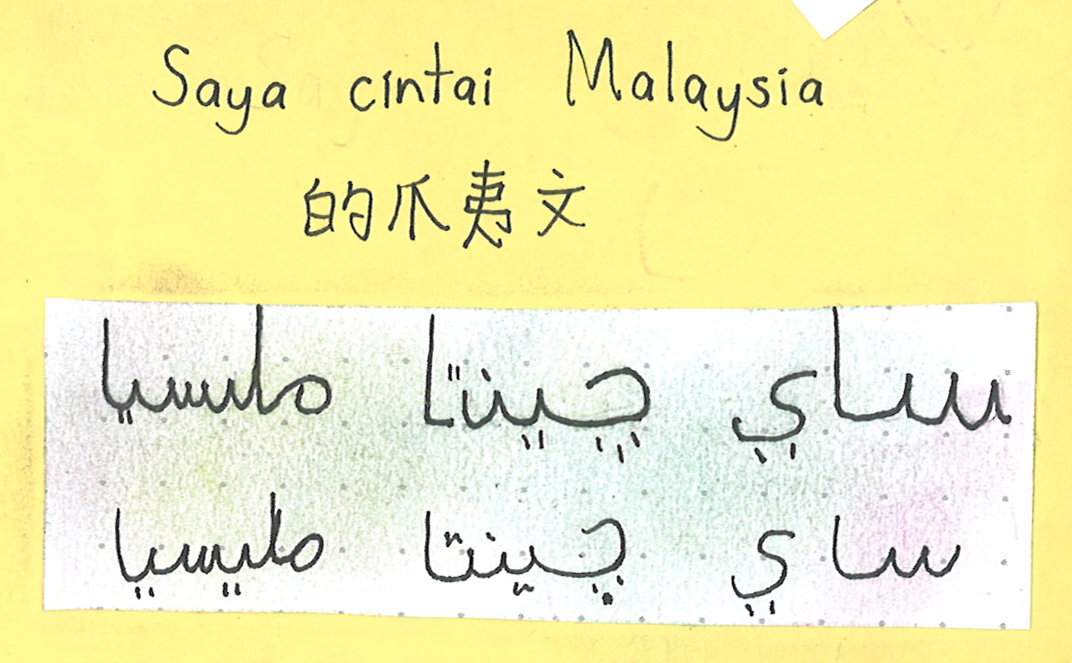 Saya cintai Malaysia
的爪夷文
ساي چينتا ملسيا
ساي چينتا مليسيا